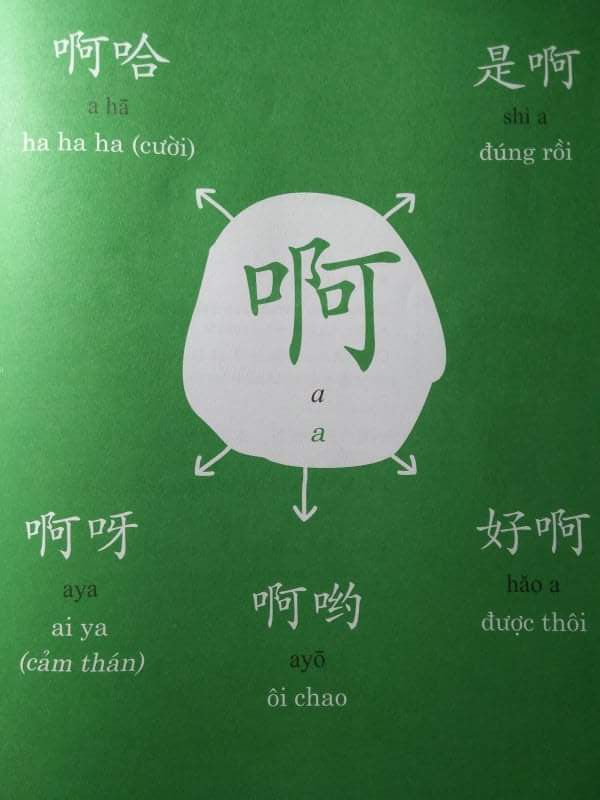 啊哈
a hā
ha ha ha (cười)
是啊
shì a
đúng rồi
啊
a
a
啊呀
aya
ai ya
(cảm thán)
啊哟
ayō
ôi chao
好啊
hăo a
được thôi